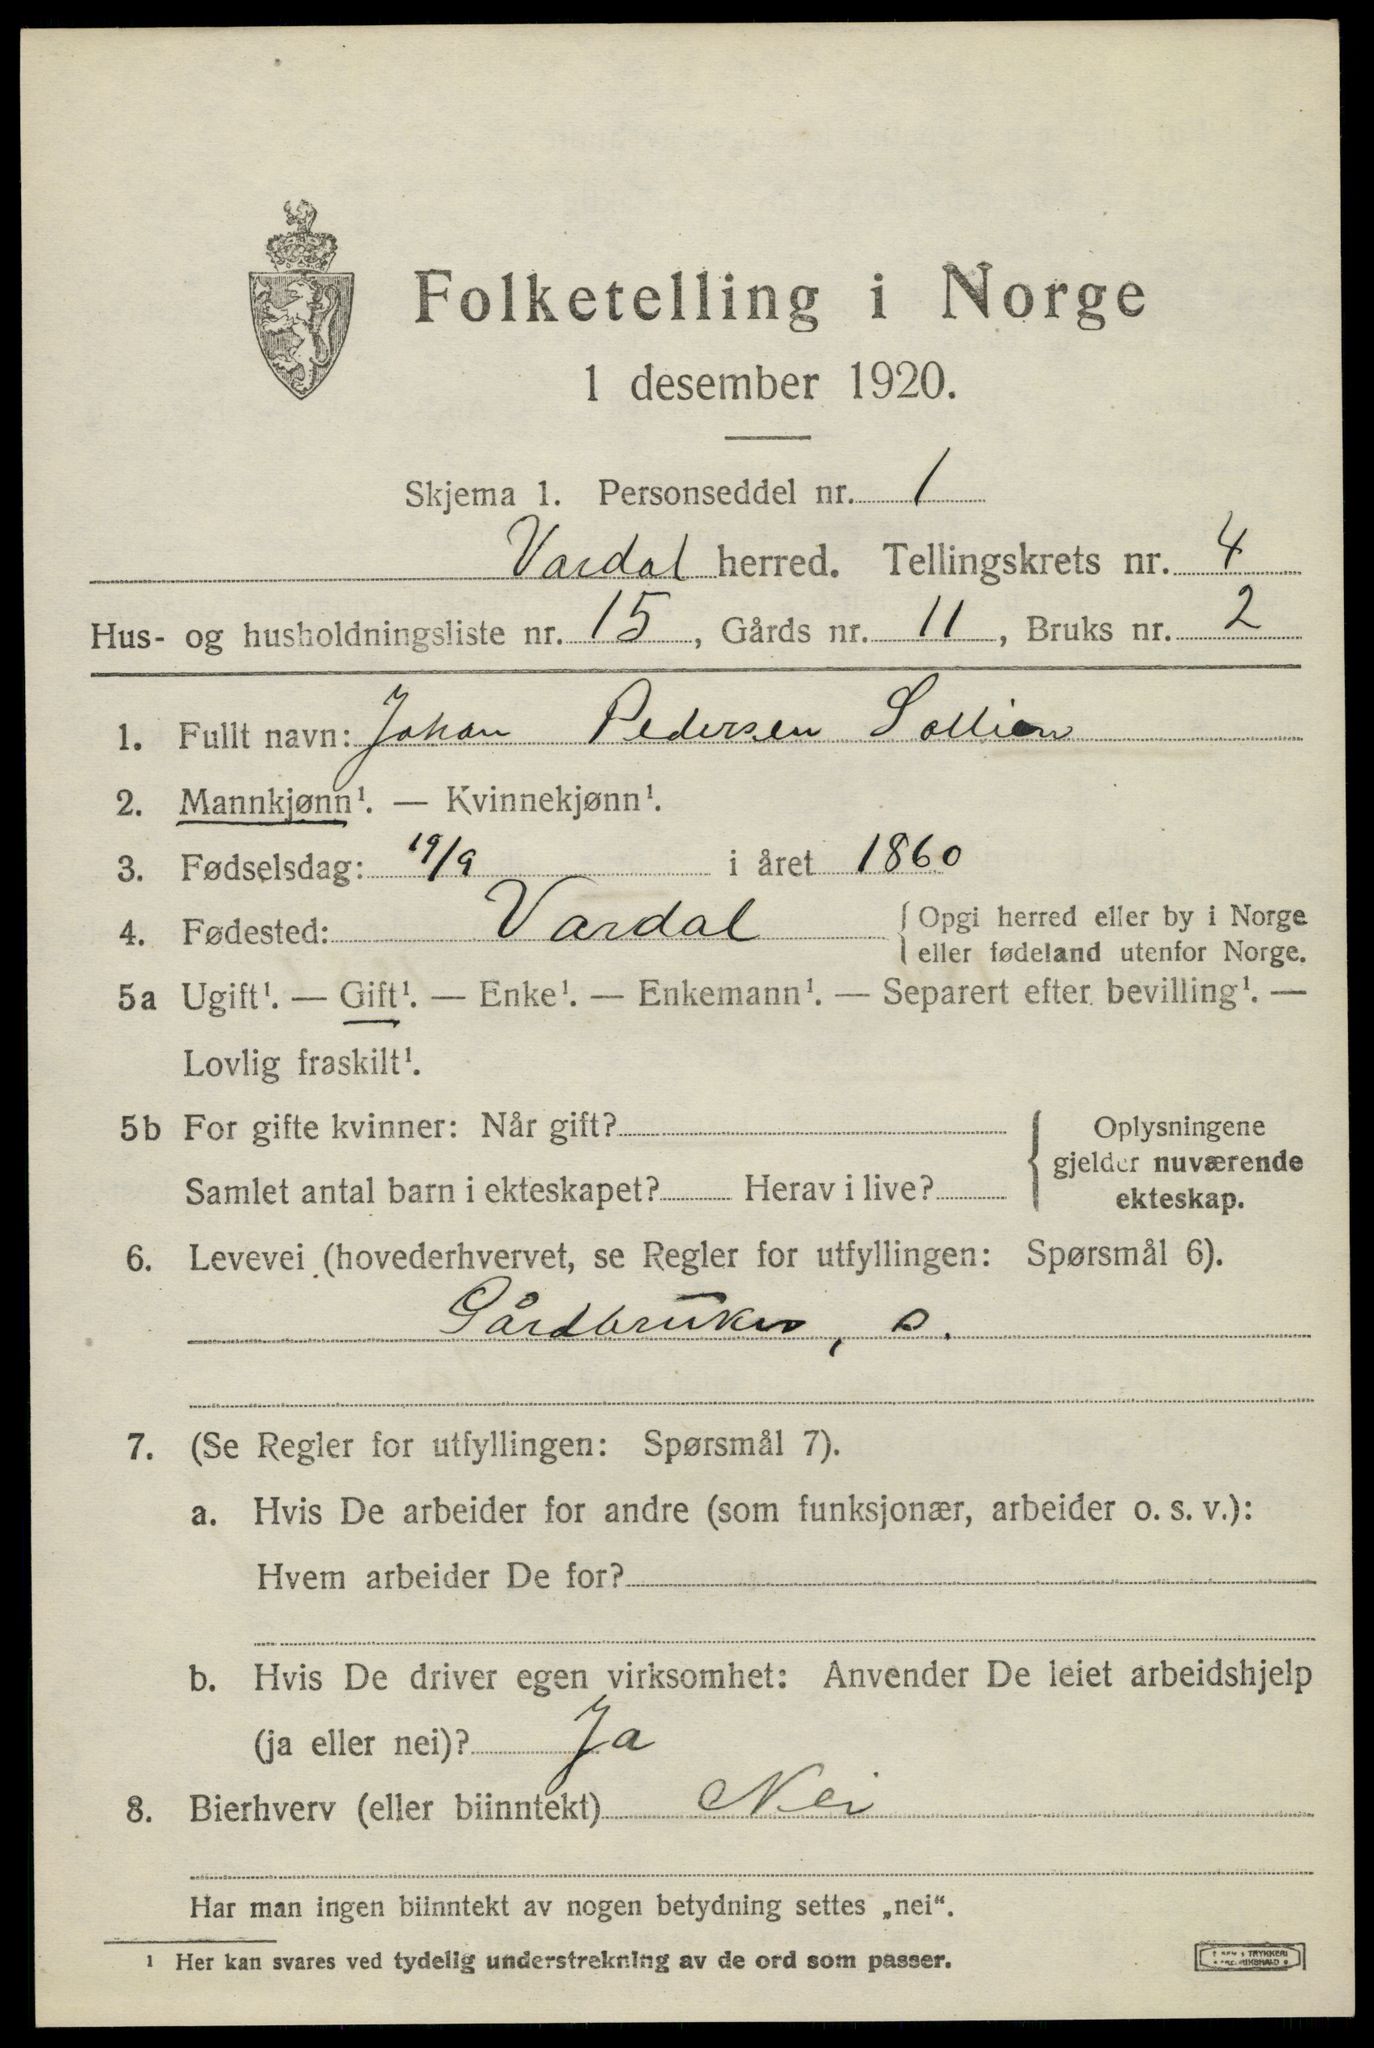 Folketelling i Norge
1 desember 1920.
Skjema 1. Personseddel nr. 1
Vardal herred. Tellingskrets nr. 4
Hus- og husholdningsliste nr. 15, Gårds nr. 11, Bruks nr. 2
1. Fullt navn: Johan Pedersen Sollien
2. Mannkjønn¹. — Kvinnekjønn¹.
3. Fødselsdag: 19/9 i året 1860
4. Fødested: Vardal { Opgi herred eller by i Norge
eller fødeland utenfor Norge.
5a Ugift¹. — Gift¹. — Enke¹. — Enkemann¹. — Separert efter bevilling¹. —
Lovlig fraskilt¹.
5b For gifte kvinner: Når gift?
Samlet antal barn i ekteskapet? Herav i live?
Oplysningene
gjelder nuværende
ekteskap.
6. Levevei (hovederhvervet, se Regler for utfyllingen: Spørsmål 6).
Gårdbruker, s.
7. (Se Regler for utfyllingen: Spørsmål 7).
a. Hvis De arbeider for andre (som funksjonær, arbeider o. s. v.):
Hvem arbeider De for?
b. Hvis De driver egen virksomhet: Anvender De leiet arbeidshjelp
(ja eller nei)? Ja
8. Bierhverv (eller biinntekt) Nei
Har man ingen biinntekt av nogen betydning settes „nei“.
¹ Her kan svares ved tydelig understrekning av de ord som passer.